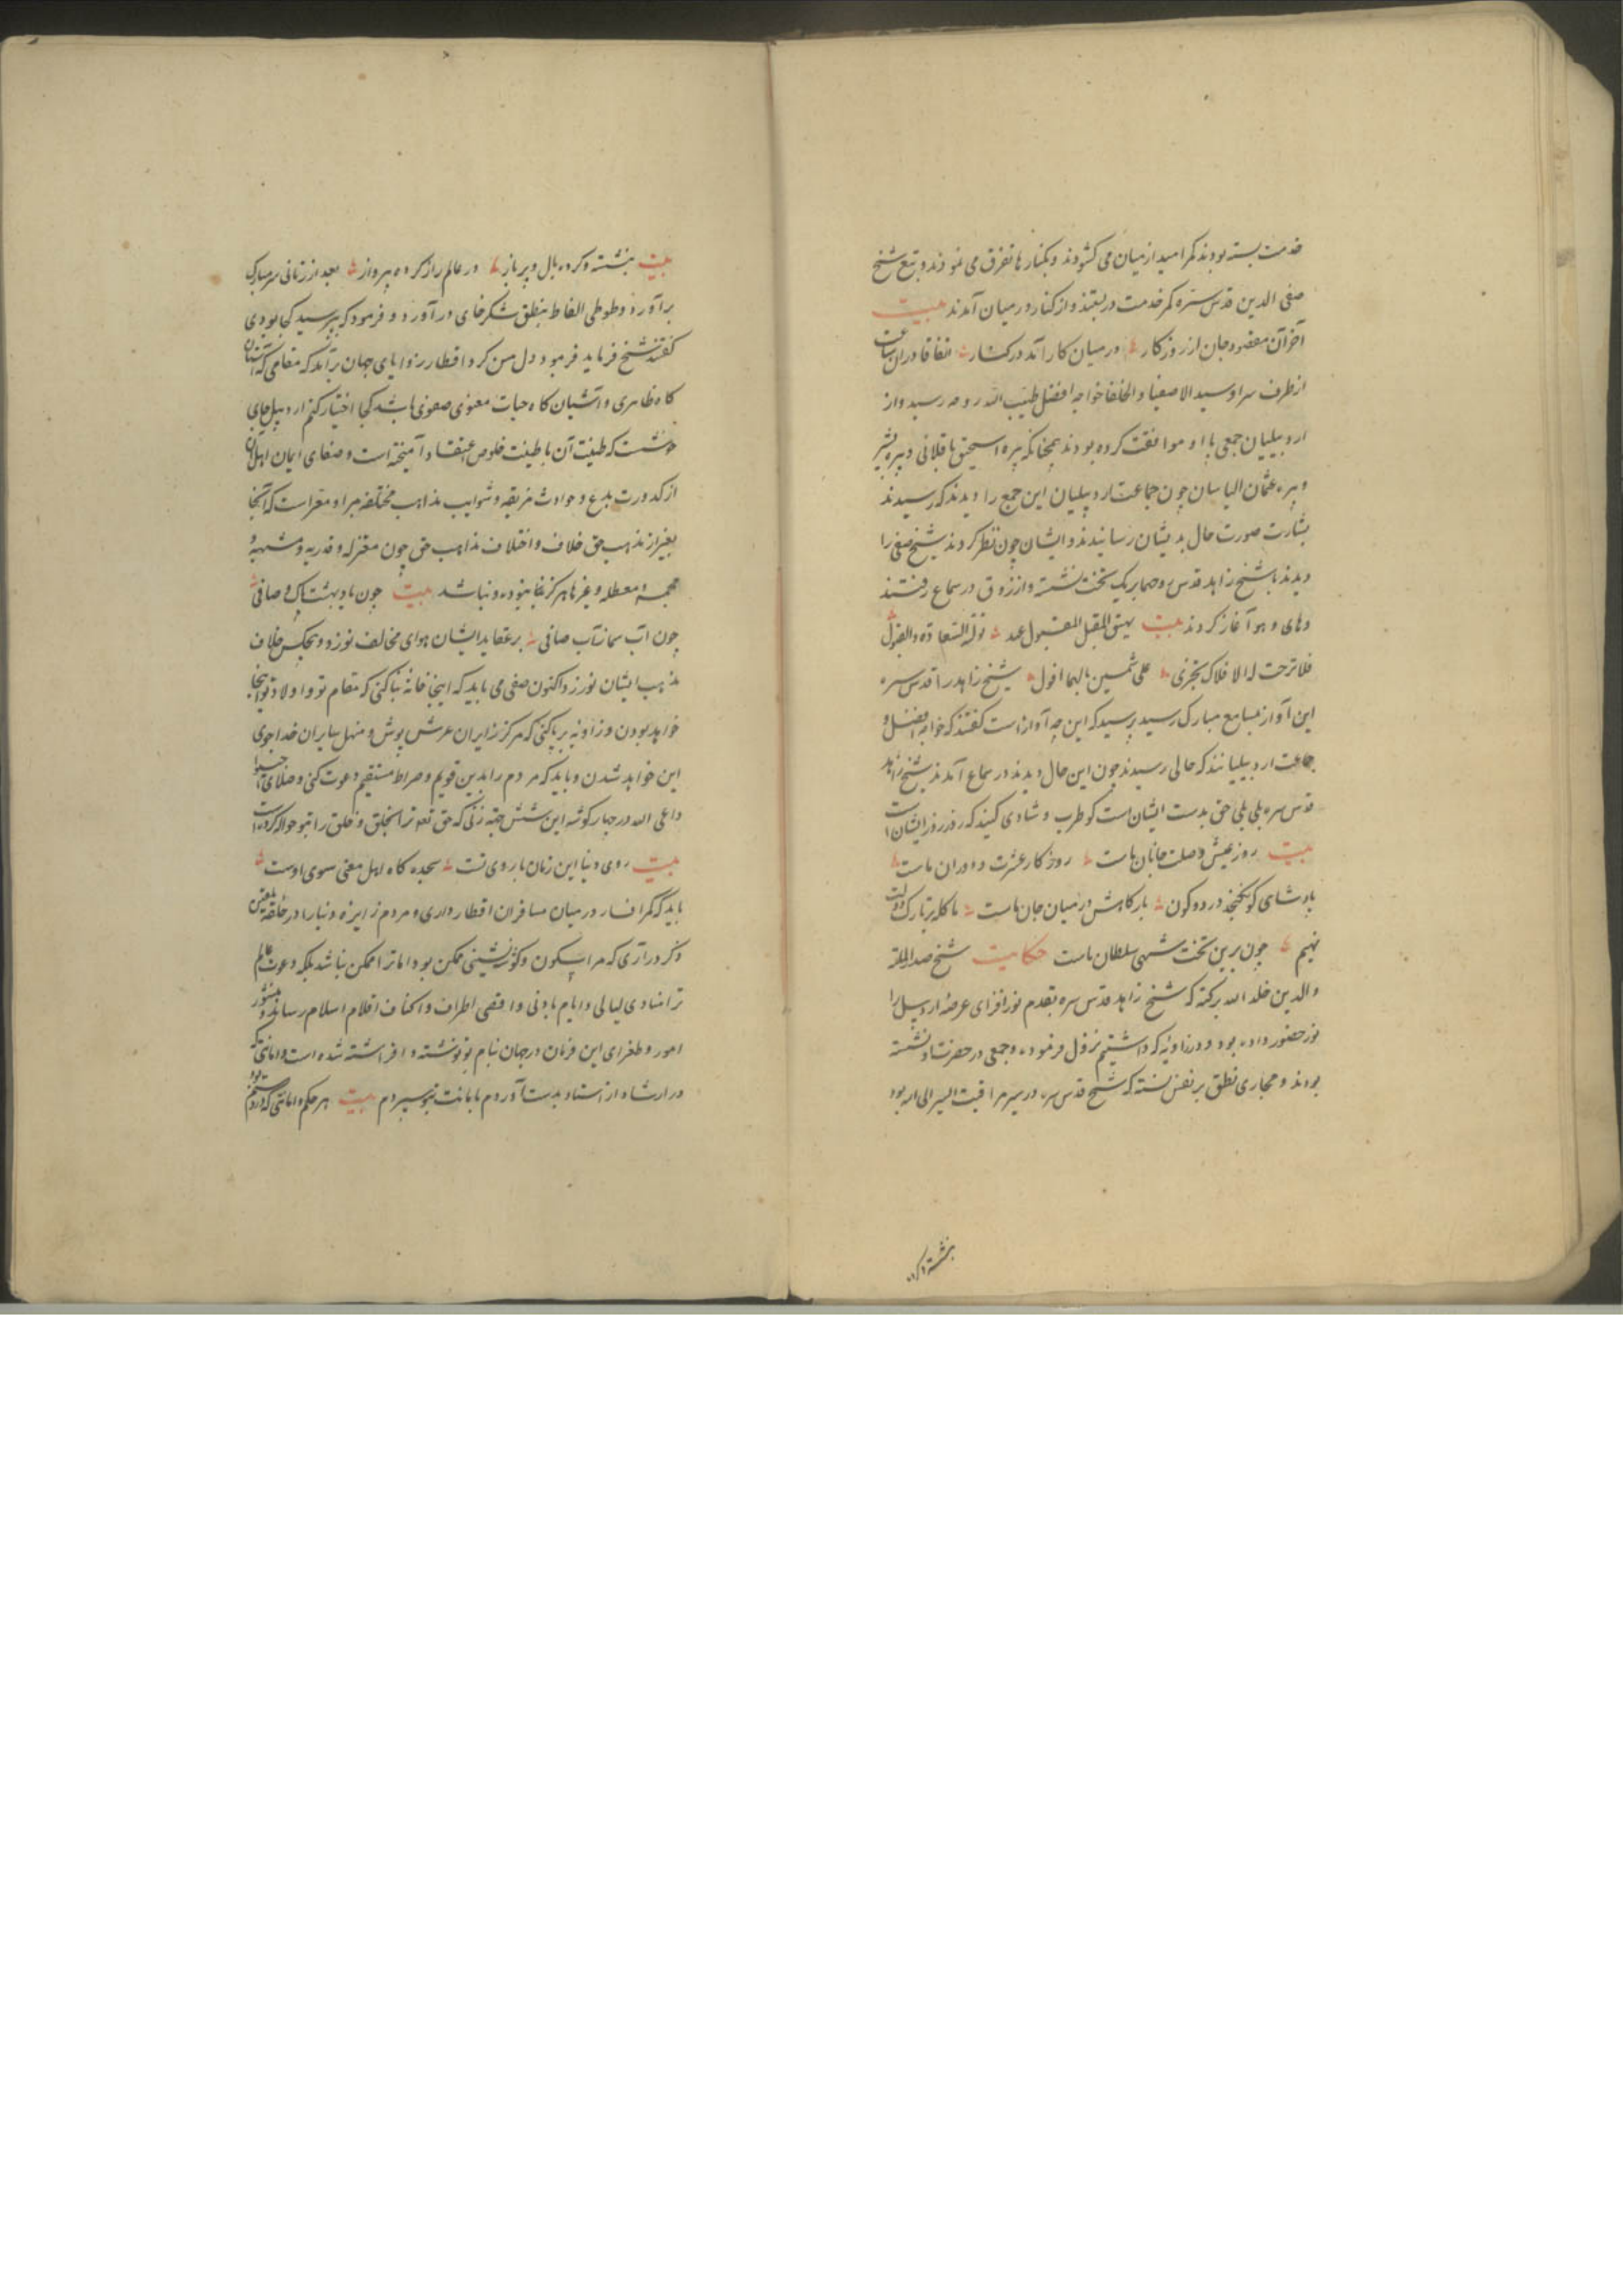 خدمت بسته بودند کمر امید از میان می کشودند و بکنارها تفرق می نمودند و بتبع شیخ
صفی الدین قدس سره کمر خدمت دربستند و از کنار در میان آمدند بیت
آخر آن مقصود جان از روزکار در میان کار آمد در کنار اتفاقا در ان ساعت
از طرف سراو سید الاصفیا و الخلفا خواجه افضل طیب الله روحه رسید و از
اردبیلیان جمعی با او موافقت کرده بودند همچنانکه پیره اسحق باقلانی و پیره
و پیره عثمان الیاسان چون جماعت اردبیلیان این جمع را دیدند که رسیدند
بشارت صورت حال بدیشان رسانیدند و ایشان چون نظر کردند شیخ صفی را
دیدند با شیخ زاهد قدس روحهما بر یک تخت نشسته و از ذوق در سماع رفتند
و های و هو آغاز کردند بیت یهنی المقبل المقبول عهد تولته السعادة والقبول
فلا ترحت له الافلاک تجری علی شمسین مالهما افول شیخ زاهد را قدس سره
این آواز بمسامع مبارک رسید پرسید که این چه آوازست کفتند که خواجه افضل و
جماعت اردبیلیانند که حالی رسیدند چون این حال دیدند در سماع آمدند شیخ زاهد
قدس سره بلی بلی حق بدست ایشانست کو طرب و شادی کنید که روز روز ایشانست
بیت روز عیش وصلت جانان ماست روزکار عشرت و دوران ماست
پادشاهی کو نکنجد در دو کون بارکاهش در میان جان ماست ما کله بر تارک دولت
نهیم چون برین تخت شهی سلطان ماست حکایت شیخ صدر المله
والدین خلد الله برکته که شیخ زاهد قدس سره بقدم نورافزای عرصه اردبیل را
نور حضور داده بود و در زاویه که داشتیم نزول فرموده و جمعی در حضرتش نشسته
بودند و مجاری نطق بر نفس بسته که شیخ قدس سره در سر مراقبت السیر الی الله بود
بنشسته و کرده
بیت بنشسته و کرده بال و پر باز در عالم راز کرده پرواز بعد از زمانی سر مبارک
برآورد و طوطی الفاظ بنطق شکرخای درآورد و فرمود که بپرسید کجا بودی
کفتند شیخ فرماید فرمود دل من کرد اقطار زوایای جهان برآمد که مقامی که آشیان
کاه ظاهری و آشیان کاه حیات معنوی صفوی باشد کجا اختیار کنم اردبیل جای
خوشست که طینت آن با طینت خلوص اعتقاد آمیخته است و صفای ایمان اهل آن
از کدورت بدع و حوادث مزیفه و شوایب مذاهب مختلفه مبرا و معراست که آنجا
بغیر از مذهب حق خلاف و اختلاف مذاهب حق چون معتزله و قدریه و مشبهه و
مجسمه و معطله و غیرها هرکز نبوده و نباشد بیت چون باد بهشت پاک و صافی
چون آب سمازتاب صافی بر عقاید ایشان هوای مخالف نوزد و هیچکس خلاف
مذهب ایشان نورزد اکنون صفی می باید که اینجا خانه بنا کنی که مقام تو و اولاد تو اینجا
خواهد بودن و زاویه بر پا کنی که مرکز زایران عرش پوش و منهل سایران خداجوی
این خواهد شدن و باید که مردم را بدین قویم و صراط مستقیم دعوت کنی و صلای اجیبوا
داعی الله در چهار کوشه این شش جهة زنی که حق تعالی ترا بخلق و خلق را بتو حواله کرده است
بیت روی دنیا این زمان با روی تست سجده کاه اهل معنی سوی اوست
باید که کمر افسار در میان مسافران اقطار داری و مردم زاید دنیا را در حلقه تلقین
ذکر درآری که مرا سکون و کوشه نشینی ممکن بود اما ترا ممکن نباشد بلکه دعوت عالم
ترا منادی لیالی و ایام بادنی و اقصی اطراف و اکناف اقلام اسلام رساند و منشور
امور و طغرای این فرمان در جهان بنام تو نوشته و افراشته شده است و امانتی که
در ارشاد از استاد بدست آوردم بامانت بتو سپردم بیت هر حکم و امانتی که بود